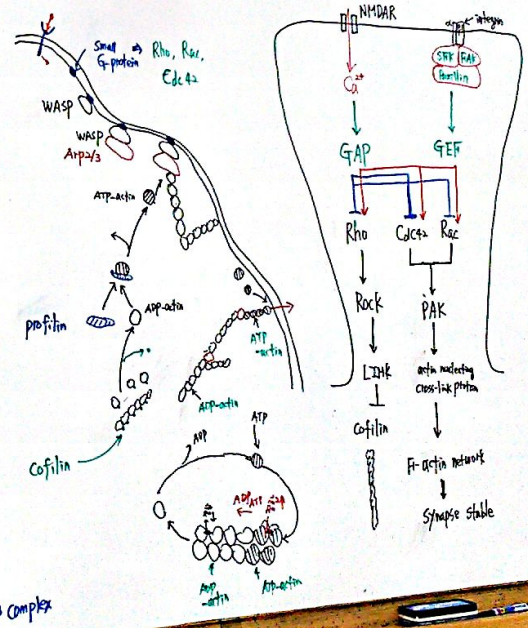 Small
G-protein
⇒ Rho, Rac,
Cdc42
WASP
WASP
Arp2/3
ATP-actin
profilin
ADP-actin
Cofilin
ATP
-actin
ADP-actin
ADP
ATP
ADP ATP
ADP
-actin
ATP-actin
complex
NMDAR
α integrin
Ca2+
SFK FAK
Paxillin
GAP
GEF
Rho
Cdc42
Rac
Rock
PAK
LIMK
actin nucleating
cross-link protein
Cofilin
F-actin network
Synapse stable